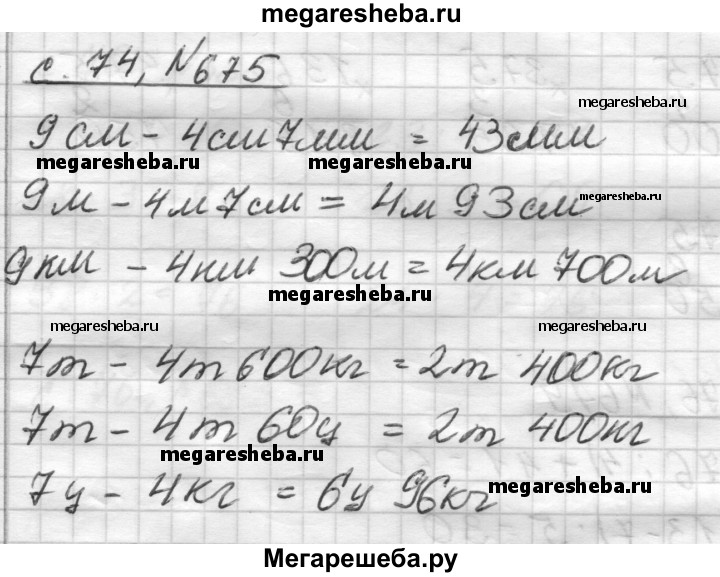 megaresheba.ru
с. 74, N 675
megaresheba.ru
9 см - 4 см 7 мм = 43 мм
megaresheba.ru megaresheba.ru
9 м - 4 м 7 см = 4 м 93 см
megaresheba.ru
9 км - 4 км 300 м = 4 км 700 м
megaresheba.ru
megaresheba.ru megaresheba.ru
7 т - 4 т 600 кг = 2 т 400 кг
7 т - 4 т 60 ц = 2 т 400 кг
megaresheba.ru
7 ц - 4 кг = 6 ц 96 кг
megaresheba.ru
Мегарешеба.ру